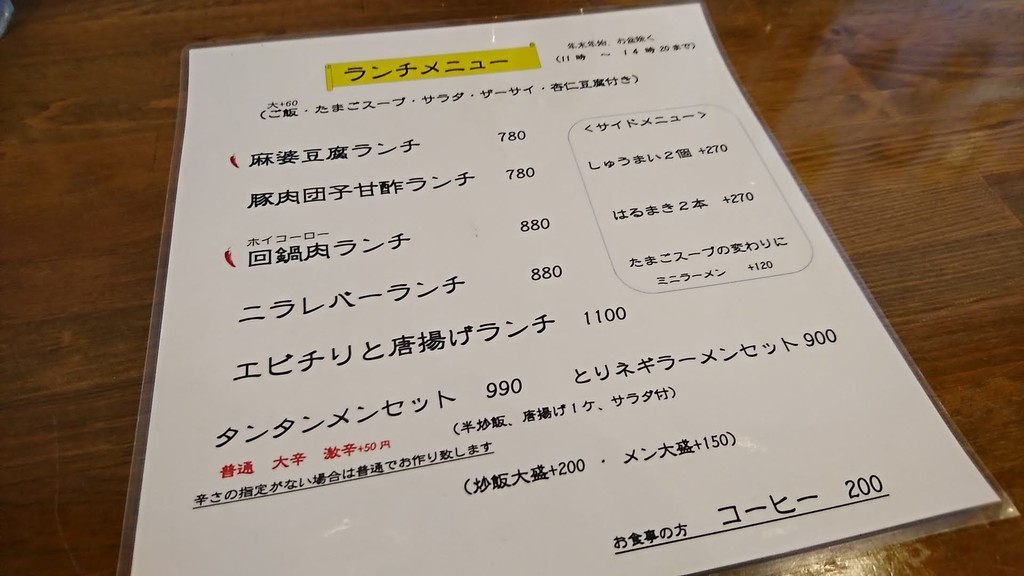 ランチメニュー
年末年始、お盆除く
(11時 ～ 14時20まで)
大+60
(ご飯・たまごスープ・サラダ・ザーサイ・杏仁豆腐付き)
麻婆豆腐ランチ 780
豚肉団子甘酢ランチ 780
ホイコーロー
回鍋肉ランチ 880
ニラレバーランチ 880
エビチリと唐揚げランチ 1100
＜サイドメニュー＞
しゅうまい2個 +270
はるまき2本 +270
たまごスープの変わりに
ミニラーメン +120
タンタンメンセット 990 とりネギラーメンセット 900
(半炒飯、唐揚げ1ケ、サラダ付)
普通 大辛 激辛+50円
辛さの指定がない場合は普通でお作り致します
(炒飯大盛+200 ・ メン大盛+150)
お食事の方 コーヒー 200